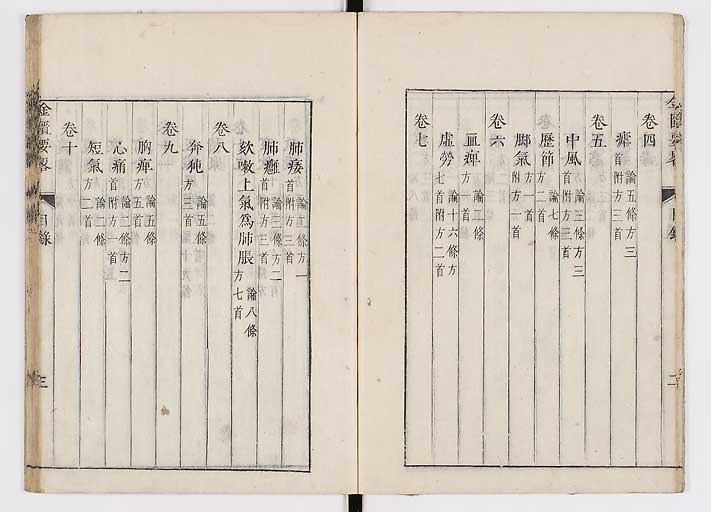 金匱要畧 目錄 二
卷四
瘧 論五條方三首附方三首
卷五
中風 論三條方三首附方三首
歷節 論七條方二首
腳氣 附方一首
卷六
血痺 論二條方一首
虛勞 論十六條方七首附方二首
卷七
肺痿 論二條方一首附方三首
肺癰 論三條方二首附方三首
欬嗽上氣爲肺脹 論八條方七首
卷八
奔㹠 論五條方三首
卷九
胸痺 論五條方五首
心痛 論二條方二首附方一首
短氣 論二條方二首
卷十
金匱要畧 目錄 三